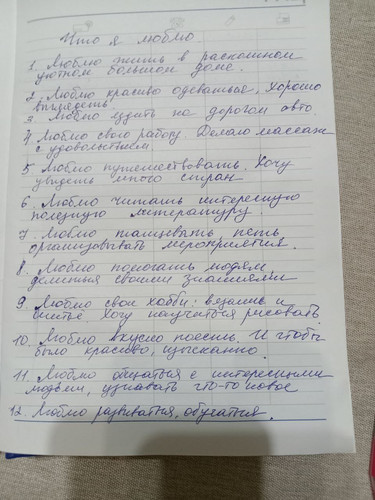 Что я люблю
1. Люблю жить в раскошном
уютном большом доме.
2. Люблю красиво одеваться, хорошо
выглядеть
3 Люблю ездить на дорогом авто.
4 Люблю свою работу. Делаю массаж
с удовольствием
5 Люблю путешествовать. Хочу
увидеть много стран
6. Люблю читать интересную
полезную литературу.
7. Люблю танцевать, петь
организовывать мероприятия.
8. Люблю помогать людям,
делиться своими знаниями
9. Люблю свои хобби: вязать и
шитьё. Хочу научиться рисовать
10. Люблю вкусно поесть. И чтобы
было красиво, изысканно.
11. Люблю общаться с интересными
людьми, узнавать что-то новое
12. Люблю развиваться, обучаться.